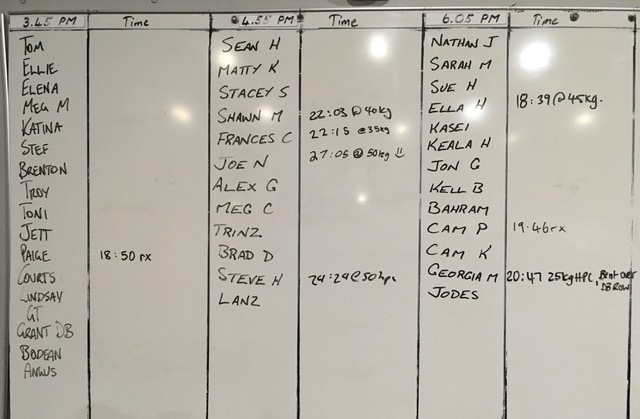 3.45 PM Time 4.55 PM Time 6.05 PM Time
TOM SEAN H NATHAN J
ELLIE MATTY K SARAH M
ELENA STACEY S SUE H
MEG M SHAWN M 22:03 @ 40kg ELLA H 18:39 @ 45kg.
KATINA FRANCES C 22:15 @ 35kg KASEI
STEF JOE N 27:05 @ 50kg KEALA H
BRENTON ALEX G JON G
TROY MEG C KELL B
TONI TRINZ BAHRAM
JETT BRAD D CAM P 19.46 rx
PAIGE 18:50 rx STEVE H 24:29 @ 50 CAM K
COURTS LANZ GEORGIA M 20:47 25kg HPC, Bent over DB ROW
LINDSAY JODES
GT
GRANT DB
BODEAN
ANGUS